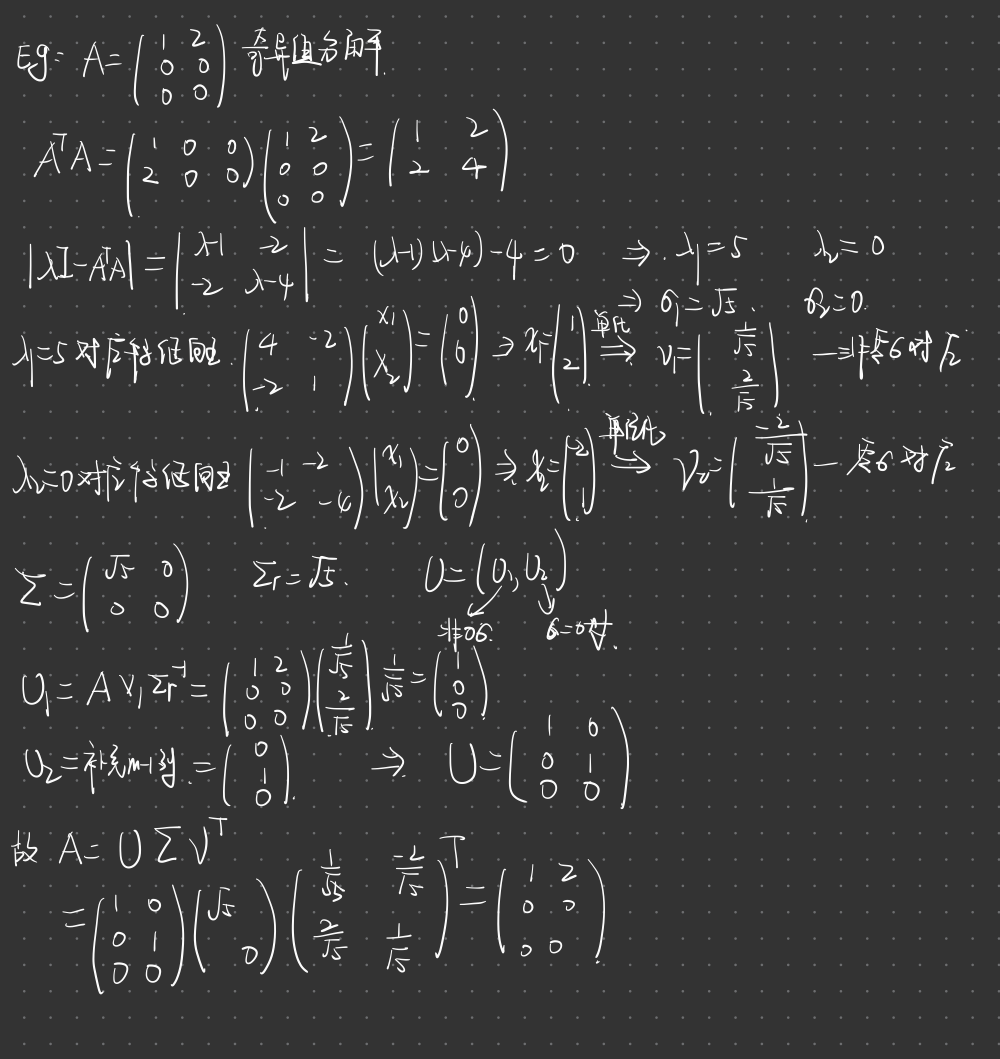 Eg: A = \begin{pmatrix} 1 & 2 \\ 0 & 0 \\ 0 & 0 \end{pmatrix} 奇异值分解.
A^T A = \begin{pmatrix} 1 & 0 & 0 \\ 2 & 0 & 0 \end{pmatrix} \begin{pmatrix} 1 & 2 \\ 0 & 0 \\ 0 & 0 \end{pmatrix} = \begin{pmatrix} 1 & 2 \\ 2 & 4 \end{pmatrix}
|λI - A^T A| = \begin{vmatrix} λ-1 & -2 \\ -2 & λ-4 \end{vmatrix} = (λ-1)(λ-4) - 4 = 0 ⇒ λ_1 = 5 λ_2 = 0
⇒ σ_1 = √5. σ_2 = 0.
λ_1 = 5 对应特征向量 \begin{pmatrix} 4 & -2 \\ -2 & 1 \end{pmatrix} \begin{pmatrix} x_1 \\ x_2 \end{pmatrix} = \begin{pmatrix} 0 \\ 0 \end{pmatrix} ⇒ x_1 = \begin{pmatrix} 1 \\ 2 \end{pmatrix} 单化 ⇒ v_1 = \begin{pmatrix} \frac{1}{√5} \\ \frac{2}{√5} \end{pmatrix} — 非零σ对应
λ_2 = 0 对应特征向量 \begin{pmatrix} -1 & -2 \\ -2 & -4 \end{pmatrix} \begin{pmatrix} x_1 \\ x_2 \end{pmatrix} = \begin{pmatrix} 0 \\ 0 \end{pmatrix} ⇒ x_2 = \begin{pmatrix} -2 \\ 1 \end{pmatrix} 单位化 → v_2 = \begin{pmatrix} \frac{-2}{√5} \\ \frac{1}{√5} \end{pmatrix} — 零σ对应
Σ = \begin{pmatrix} √5 & 0 \\ 0 & 0 \end{pmatrix} Σ_r = √5. U = (U_1, U_2)
非0σ. σ=0对.
U_1 = A V_1 Σ_r^{-1} = \begin{pmatrix} 1 & 2 \\ 0 & 0 \\ 0 & 0 \end{pmatrix} \begin{pmatrix} \frac{1}{√5} \\ \frac{2}{√5} \end{pmatrix} \frac{1}{√5} = \begin{pmatrix} 1 \\ 0 \\ 0 \end{pmatrix}
U_2 = 补充m-1列. = \begin{pmatrix} 0 \\ 1 \\ 0 \end{pmatrix}. ⇒ U = \begin{pmatrix} 1 & 0 \\ 0 & 1 \\ 0 & 0 \end{pmatrix}
故 A = U Σ V^T
= \begin{pmatrix} 1 & 0 \\ 0 & 1 \\ 0 & 0 \end{pmatrix} \begin{pmatrix} √5 & \\ & 0 \end{pmatrix} \begin{pmatrix} \frac{1}{√5} & \frac{-2}{√5} \\ \frac{2}{√5} & \frac{1}{√5} \end{pmatrix}^T = \begin{pmatrix} 1 & 2 \\ 0 & 0 \\ 0 & 0 \end{pmatrix}